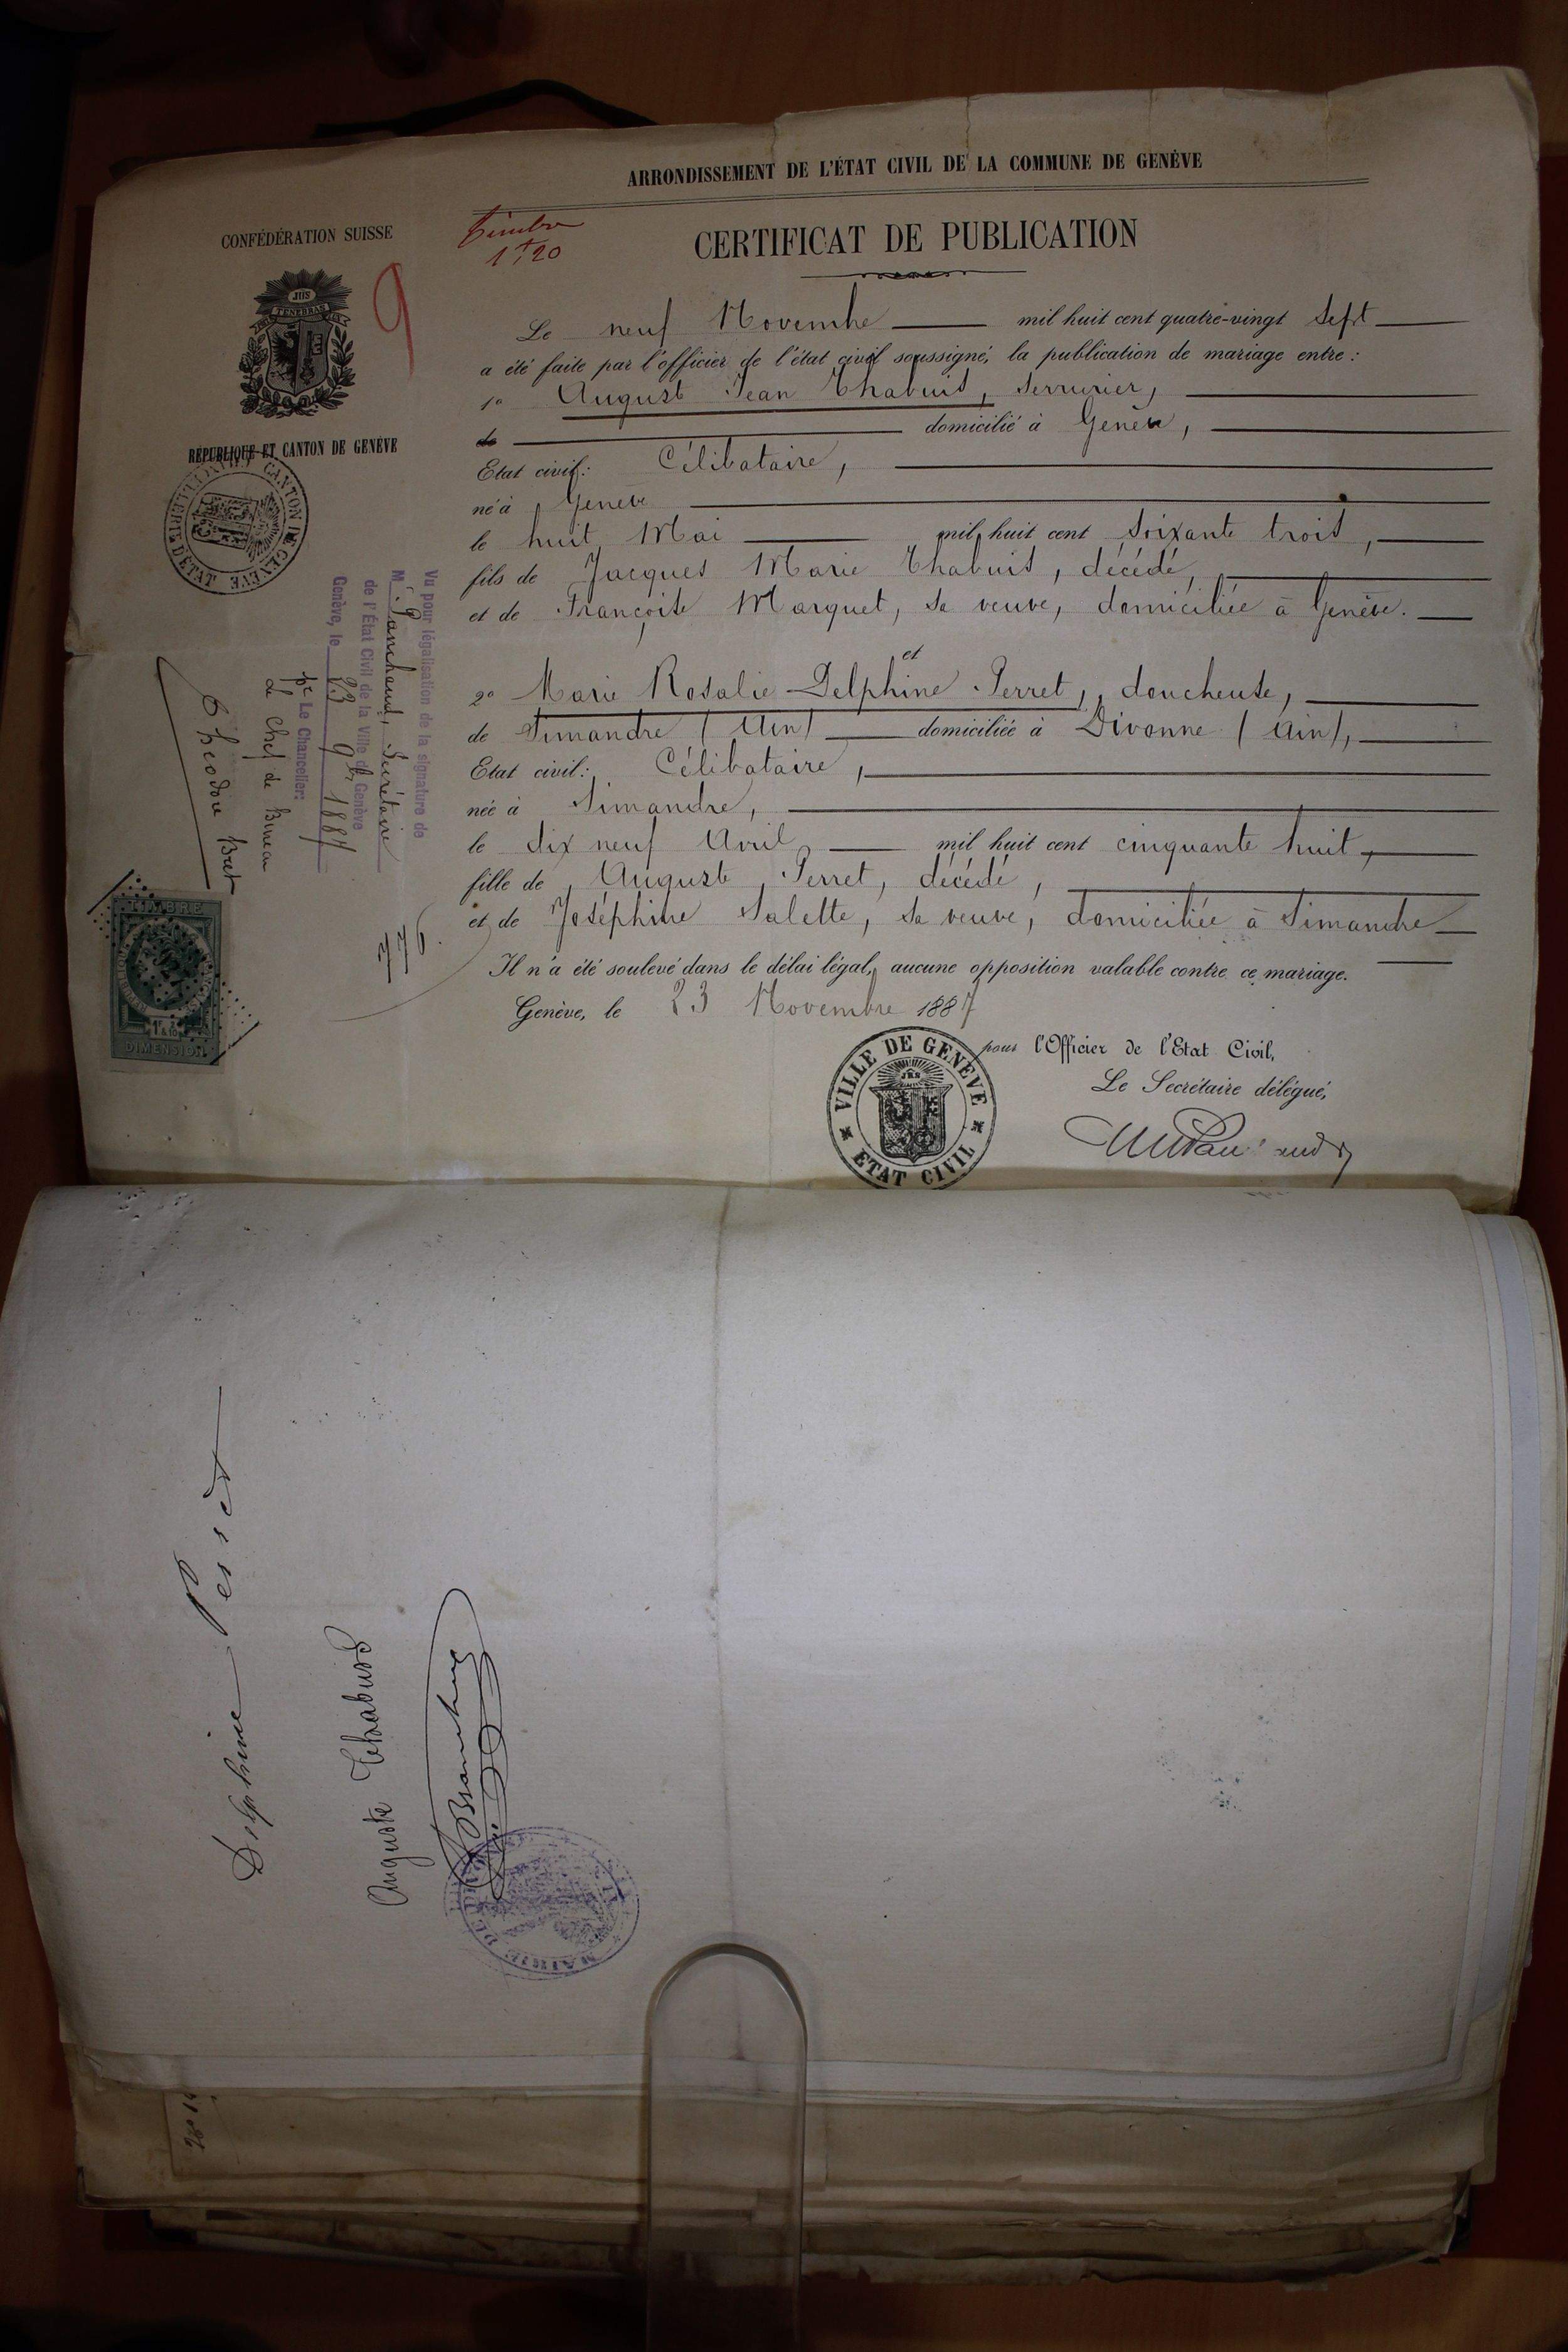 ARRONDISSEMENT DE L'ÉTAT CIVIL DE LA COMMUNE DE GENÈVE
CONFÉDÉRATION SUISSE
Timbre
1 f 20
9
CERTIFICAT DE PUBLICATION
RÉPUBLIQUE ET CANTON DE GENÈVE
Le neuf Novembre mil huit cent quatre-vingt Sept
a été faite par l'officier de l'état civil soussigné, la publication de mariage entre :
1º Auguste Jean Chabuis, Serrurier,
de domicilié à Genève,
Etat civil: Célibataire,
né à Genève
le huit Mai mil huit cent Soixante trois,
fils de Jacques Marie Chabuis, décédé,
et de Françoise Marquet, sa veuve, domiciliée à Genève.
et
2º Marie Rosalie Delphine Perret, doucheuse,
de Simandre (Ain) domiciliée à Divonne (Ain),
Etat civil: Célibataire,
née à Simandre,
le dix neuf Avril mil huit cent cinquante huit,
fille de Auguste Perret, décédé,
et de Joséphine Salette, sa veuve, domiciliée à Simandre
Il n'a été soulevé dans le délai légal, aucune opposition valable contre ce mariage.
Genève, le 23 Novembre 1887
pour l'Officier de l'Etat Civil,
Le Secrétaire délégué,
VILLE DE GENÈVE
ETAT CIVIL
CHANCELLERIE D'ÉTAT CANTON DE GENÈVE
Vu pour légalisation de la signature de
Mr. Panchaud, Secrétaire
de l'État Civil de la Ville de Genève
Genève, le 23 9bre 1887
pr Le Chancelier:
Le Chef de Bureau
Théodore Bret
776.
TIMBRE
DIMENSION
Delphine Perret
Auguste Chabuis
MAIRIE DE